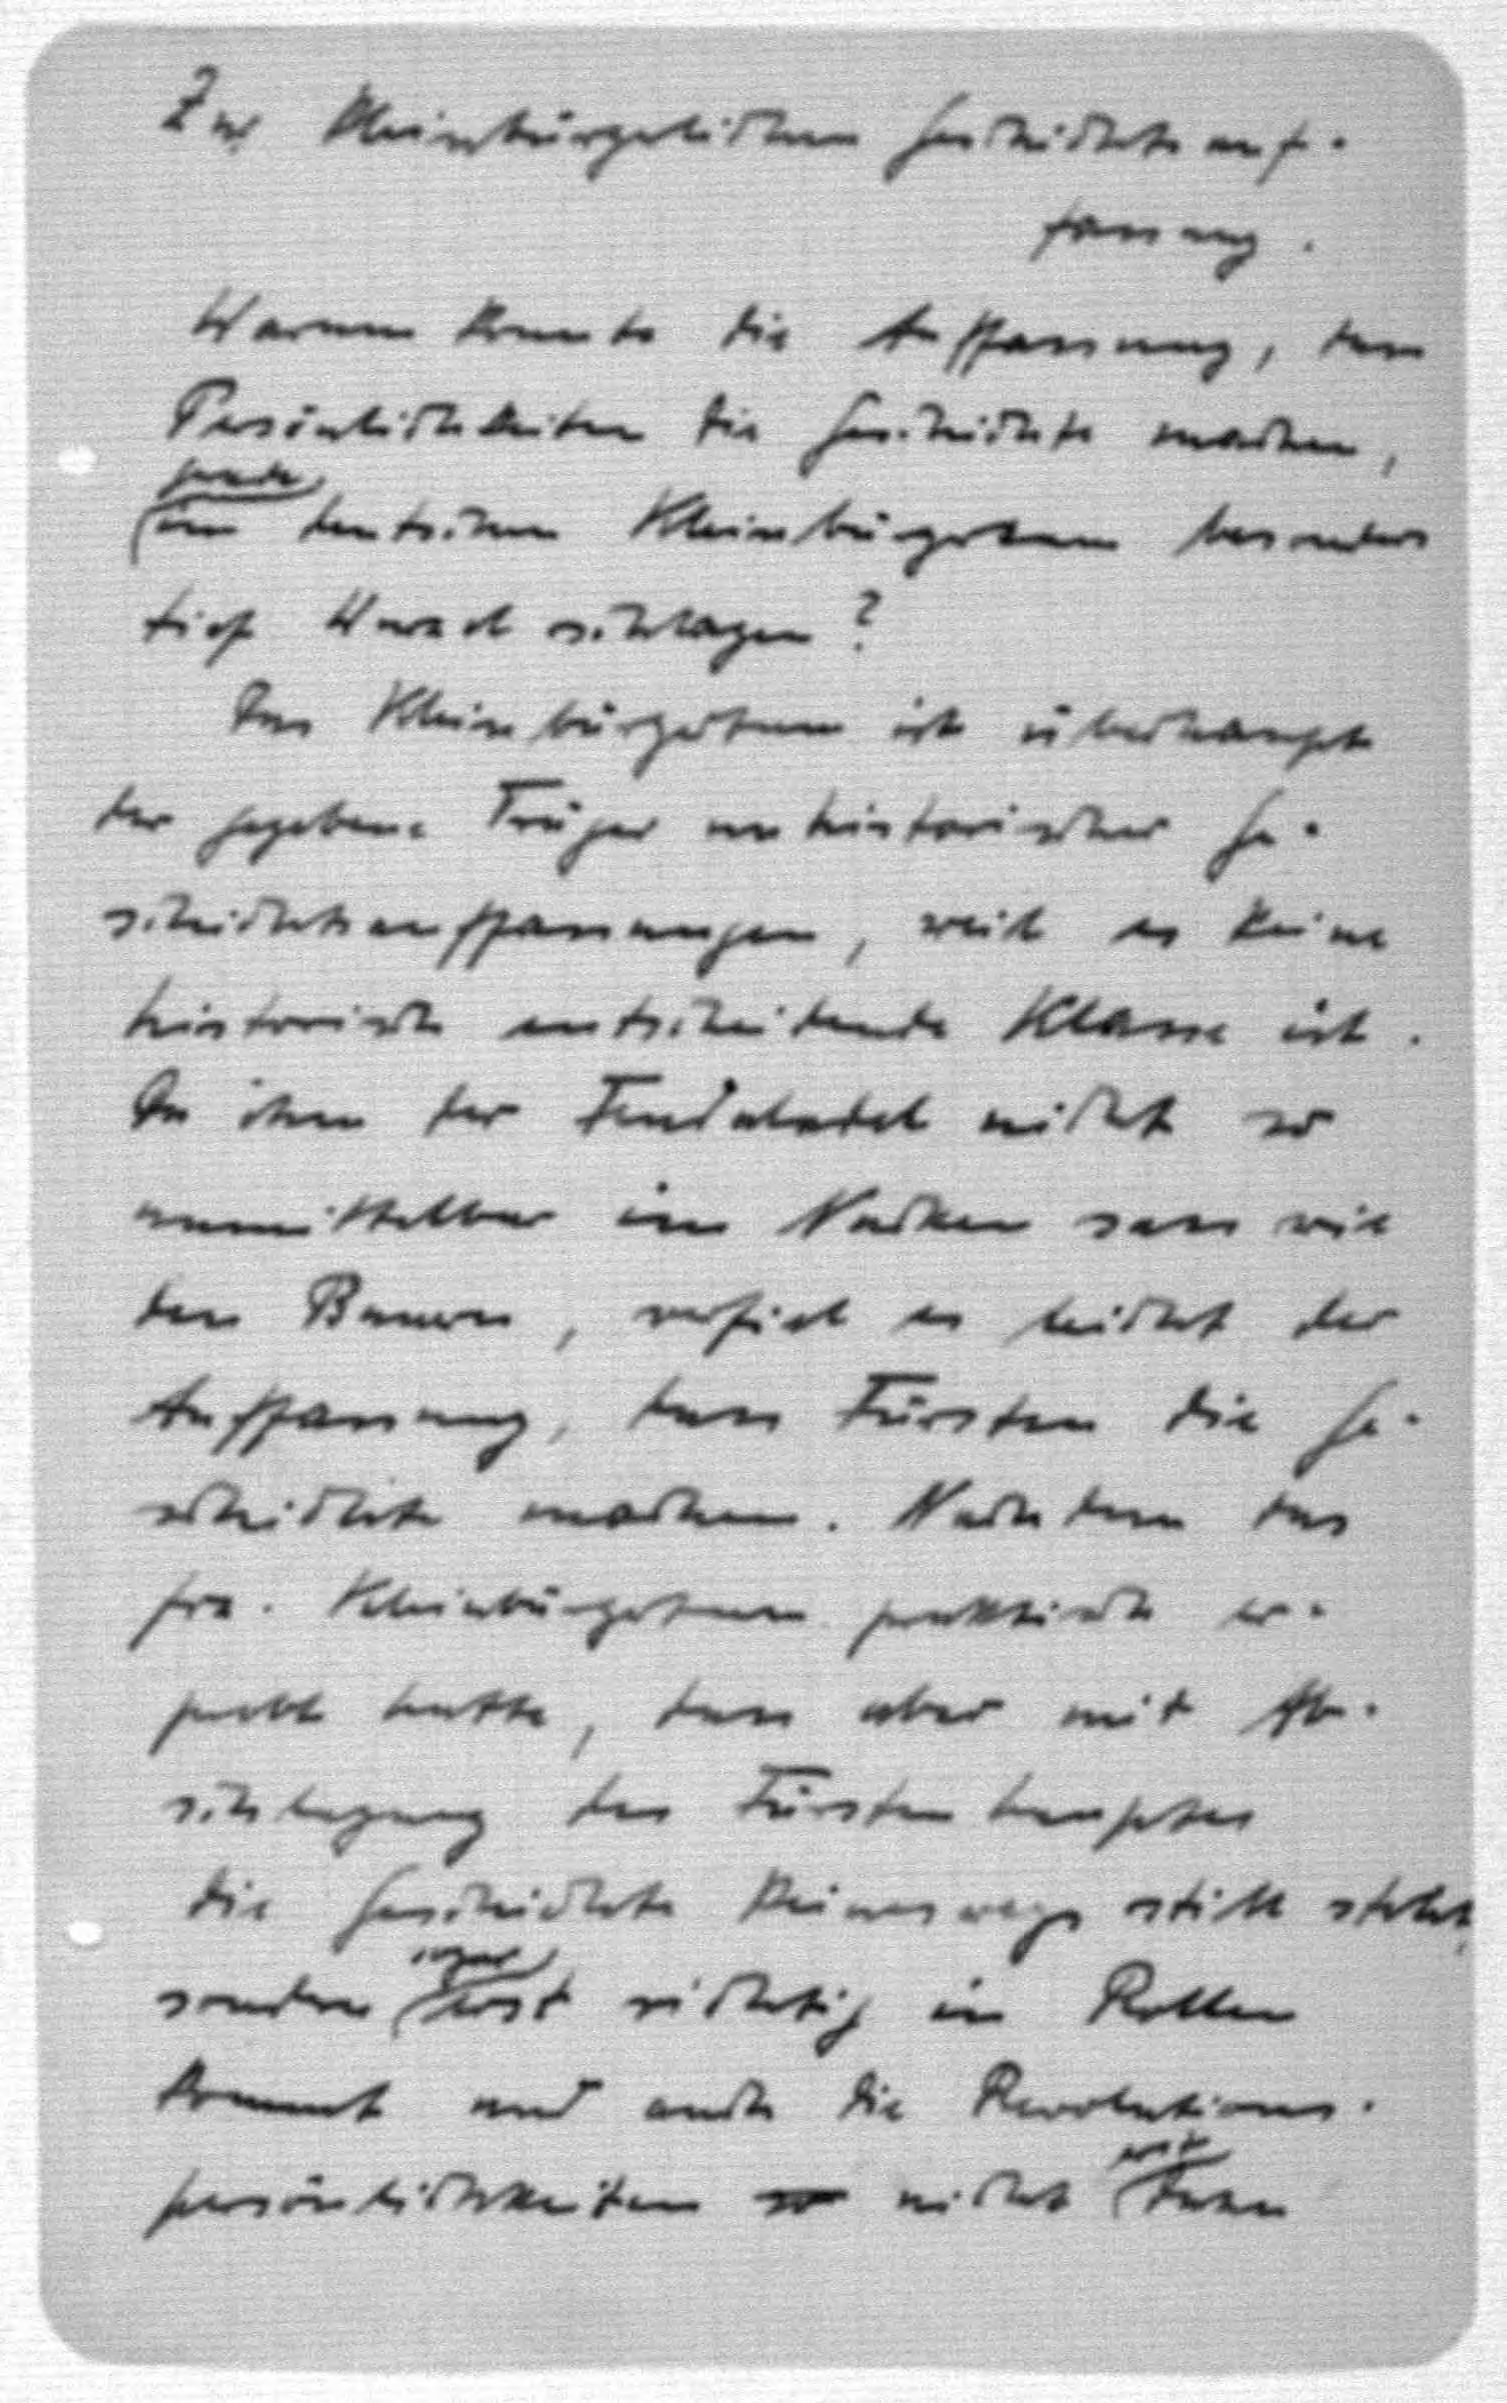 Zur kleinbürgerlichen Geschichtsauf-
fassung.
Warum konnte die Auffassung, dass
Persönlichkeiten die Geschichte machen,
gerade
im deutschen Kleinbürgertum besonders
tief Wurzel schlagen?
Das Kleinbürgertum ist überhaupt
der gegebene Träger unhistorischer Ge-
schichtsauffassungen, weil es keine
historisch entscheidende Klasse ist.
Da ihm der Feudaladel nicht so
unmittelbar im Nacken sass wie
den Bauern, verfiel es leicht der
Auffassung, dass Fürsten die Ge-
schichte machen. Nachdem das
frz. Kleinbürgertum praktisch er-
probt hatte, dass aber mit Ab-
schlagung des Fürstenhauptes
die Geschichte keineswegs still steht,
sogar
sondern erst richtig in Rollen
kommt und auch die Revolutions-
persönlichkeiten nicht